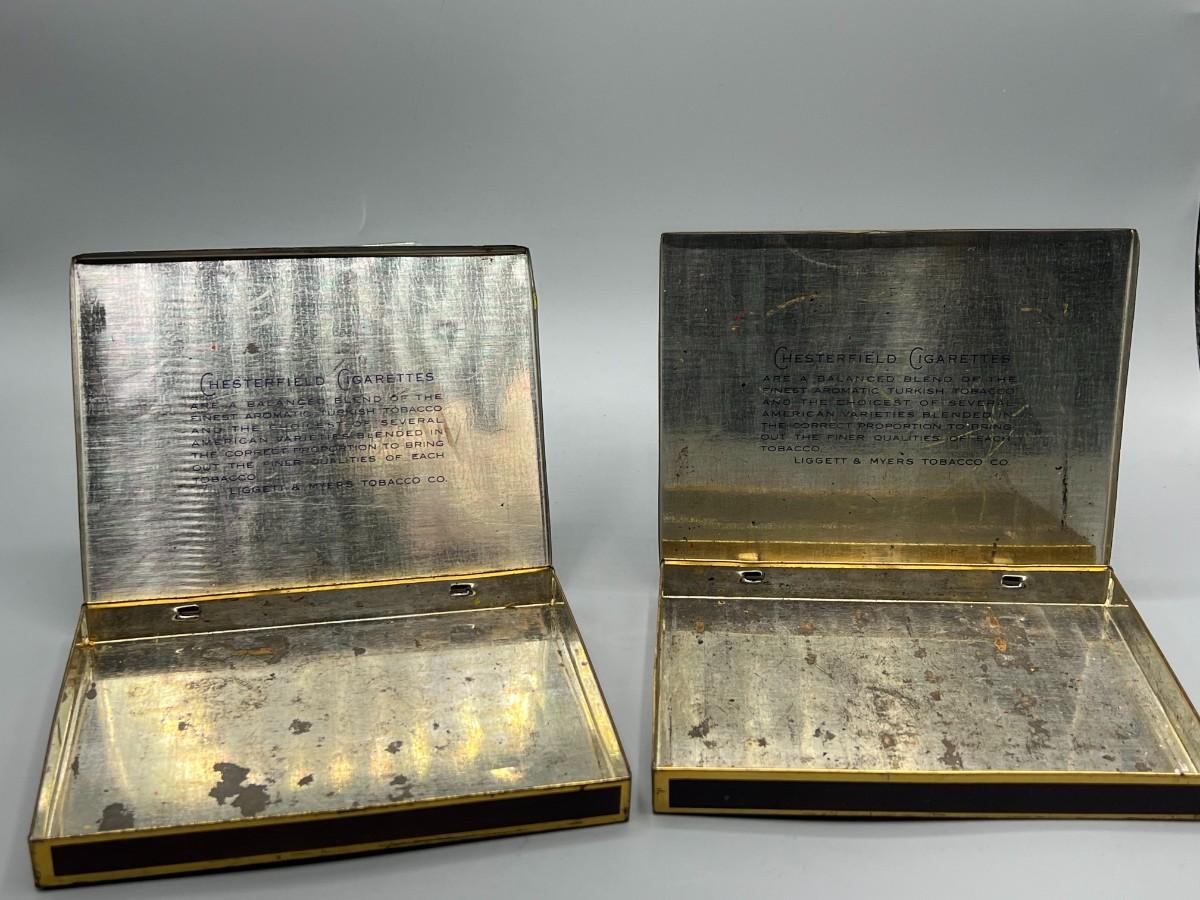 CHESTERFIELD CIGARETTES
ARE A BALANCED BLEND OF THE
FINEST AROMATIC TURKISH TOBACCO
AND THE CHOICEST OF SEVERAL
AMERICAN VARIETIES BLENDED IN
THE CORRECT PROPORTION TO BRING
OUT THE FINER QUALITIES OF EACH
TOBACCO.
LIGGETT & MYERS TOBACCO CO.
CHESTERFIELD CIGARETTES
ARE A BALANCED BLEND OF THE
FINEST AROMATIC TURKISH TOBACCO
AND THE CHOICEST OF SEVERAL
AMERICAN VARIETIES BLENDED IN
THE CORRECT PROPORTION TO BRING
OUT THE FINER QUALITIES OF EACH
TOBACCO.
LIGGETT & MYERS TOBACCO CO.